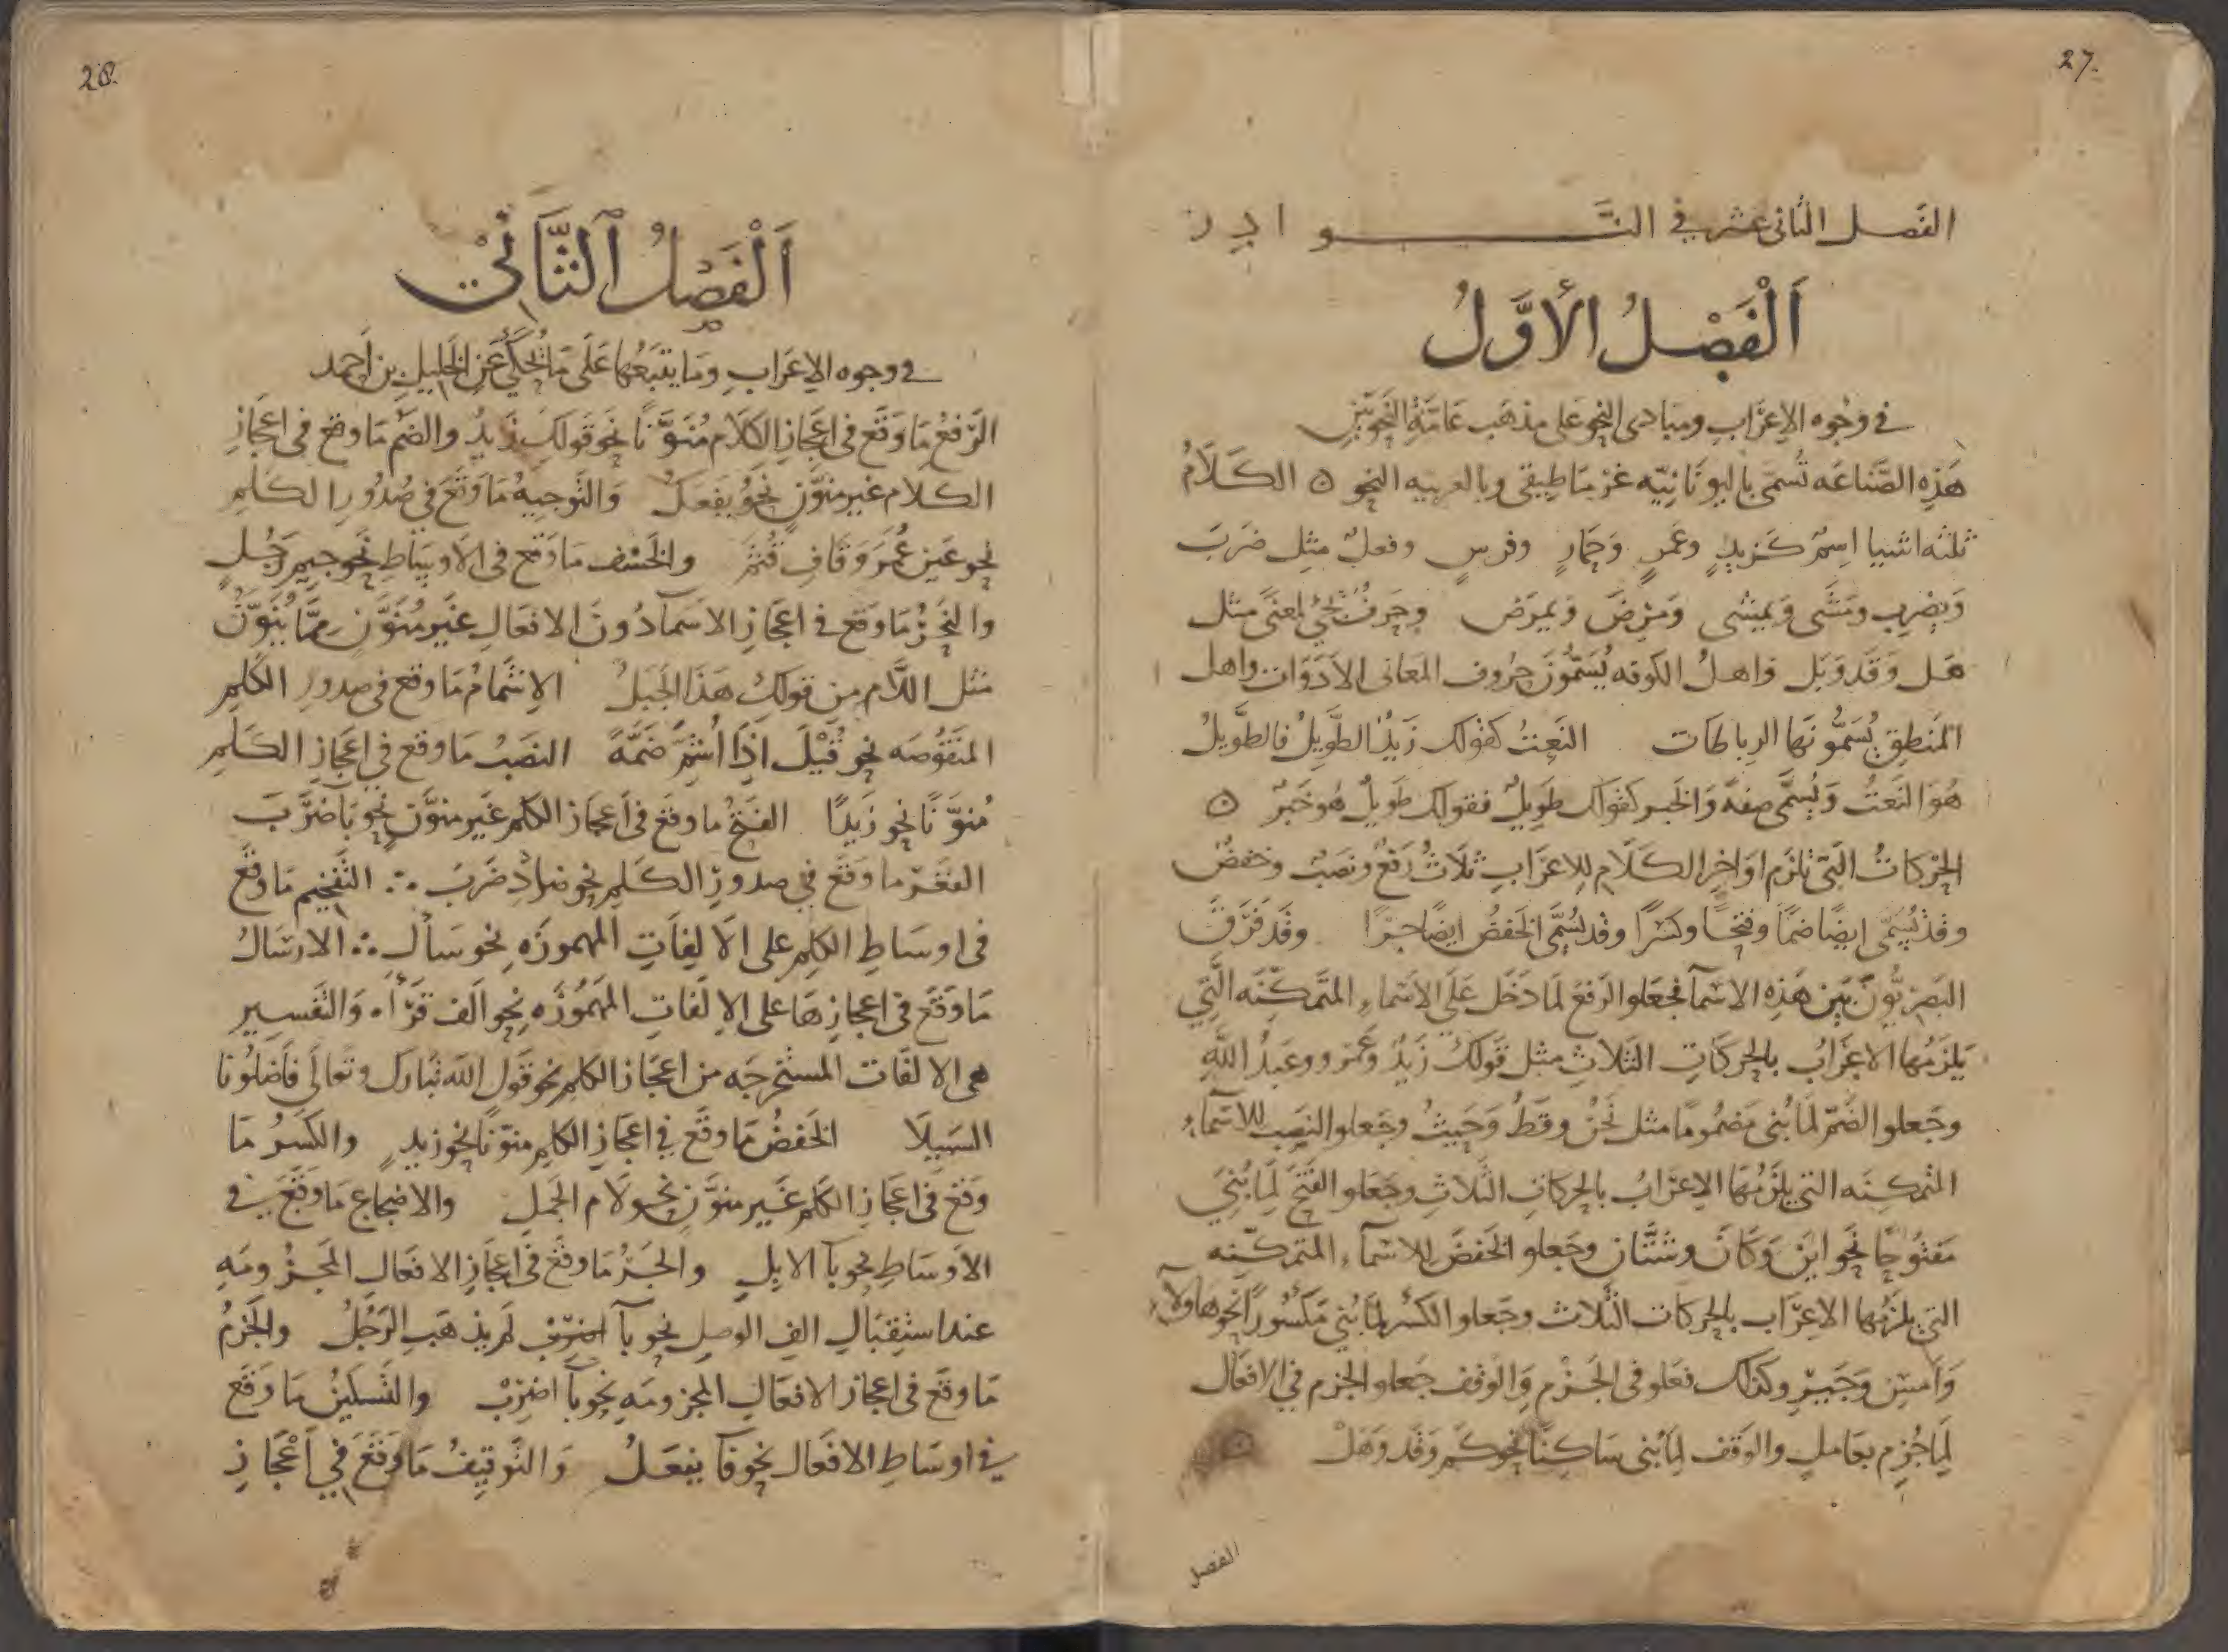 27.
الفصل الثاني عشر في النـــوادر
اَلْفَصْلُ الأَوَّلُ
في وجُوه الإعرَابِ ومبَادى النحو على مذهَب عَامَّةِ النَحويّين
هَذِه الصّنَاعَه تُسمّى باليُونَانيّه غرمَاطيقى وبالعربيه النحو ○ الكَلَامُ
ثلثه اشيا اسمٌ كَزيدٍ وعَمرٍ وَحِمَارٍ وفرسٍ وفعلٌ مثل ضَربَ
وَيضرِب ومَشَى وَيمشى وَمرِضَ وَيمرَض وحَرفٌ يَجئ لمعنًى مثل
هَل وَقَد وَبَل وَاهلُ الكوفه يُسَمُّونَ حُروف المعَانى الأدَوَات واهل
المنَطقِ يُسَمُّونَهَا الرباطَات النَعتُ كقولك زَيدٌ الطَّوِيلُ فالطَّوِيلُ
هُوَ النَعتُ وَيُسَمَّى صِفَةً وَالخَبر كقولك طَوِيلٌ فقولك طَويلٌ هُو خَبَرٌ ○
الحركَاتُ الَتى تلزَم اوَاخِر الكَلَامِ للإعرَابِ ثَلَاثٌ رَفعٌ ونَصَبٌ وخفضٌ
وقد تُسمّى ايضًا ضمًّا وفتحًا وكسْرًا وقد يُسَمَّى الخَفضُ ايضًا جرًّا وقَد فَرَّقَ
البَصريُّونَ بَين هَذِه الاسمآ فجعَلوا الرَفعَ لمَا دَخَل عَلَى الاسمَاءِ المتَمكِّنَه الَّتِي
يَلزَمُهَا الاعرَابُ بالحركَاتِ الثَلاثِ مثل قَولكَ زَيدٌ وعَمرو وعَبدُ اللَّهِ
وجَعلوا الضَّمّ لمَا بُنى مَضمُومًا مثل نَحنُ وقَطُّ وَحَيثُ وجَعلو النَصبَ للاسمَآءِ
المتَمكِنَه التى يلزَمُهَا الإعرَابُ بالحركَاتِ الثَلاثِ وجَعَلو الفَتحَ لمَا بُنِيَ
مَفتُوحًا نَحو اينَ وَكَانَ وشتَّانَ وجَعلو الخَفضَ للاسمَآءِ المتَمكِّنه
التى يلزَمُهَا الإعرَاب بالحركَات الثَلاث وجَعلو الكَسرَ لمَا بُنِي مَكسُورًا نحو هاولآءِ
وَامسِ وَجَيرِ وكذلكَ فعَلو فى الجَزمِ وَالوقف جَعلو الجزم في الافعَال
لِمَا جُزِم بعَاملٍ والوَقف لِمَا بُنى سَاكنًا نحو كَم وَقَد وَهَلْ ○
الفصل
28.
اَلْفَصْلُ ٱلثَّانِيْ
في وجوه الإعرَابِ ومَا يتبَعُهَا عَلَى مَا يُحكَى عَنِ الخَليلِ بن اَحمد
الرَّفعُ مَا وَقَع فى اعجَازِ الكَلَامِ مُنَوَّنًا نَحو قولكَ زَيدٌ والضَمُّ مَا وقع فى اعجَازِ
الكَلَام غير منَوَّنٍ نَحوُ يَفعَلُ وَالتَوجِيهُ مَا وَقَعَ في صُدُورِ الكَلِمِ
نحو عَين عُمَرَ وَقَافِ قُثَمَ والحَشو مَا وَقع فى الأوسَاطِ نَحو جِيمِ رَجُلٍ
والنَجرُ مَا وَقَع فى اعجَازِ الاسمآ دُونَ الافعَالِ غَيرَ مُنَوَّنٍ مِمَّا يُنَوَّنُ
مثل اللَّام مِن قولكَ هَذَا الجَبَلُ الإشمَامُ مَا وقَع فى صدورِ الكَلِمِ
المنقُوصَه نحو قُيْلَ اِذَا اُشِمَّ ضَمَّةً النصبُ مَا وقع في اعجَازِ الكَلِمِ
مُنوَّنًا نحو زَيدًا الفَتحُ مَا وقَع فى اَعجَازِ الكلم غَير منوَّنٍ نحو بَا ضَرَبَ
القعَر ما وَقعَ في صدورِ الكَلِم نحو ضَادِ ضَرَبَ ∴ التَّفخِيم مَا وقَعَ
فى اوسَاطِ الكَلِمِ على الاَلِفَاتِ المهموزَه نحو سَأَلَ ∴ الارسَالُ
مَا وَقَع فى اعجازِهَا على الالفَاتِ المهمُوزَه نحو الَف قَرَأَه وَالتَفسير
هى الالفَات المستخرجَه من اعجَازِ الكلم نحو قَول اللّه تبَارك وتعَالَى فَاَضلُونَا
السَبِيلَا الخَفضُ مَا وقعَ فى اعجَازِ الكلم منوّنًا نحو زيدٍ والكَسرُ مَا
وَقع فى اعجَازِ الكَلِم غَير منوَّنٍ نحو لَامِ الجَمَلِ والاضجاعُ مَا وَقعَ في
الأوسَاطِ نحو بآ الابِلِ والجَرُّ مَا وقَع فى اعجَازِ الافعَالِ المَجزومَهِ
عند استِقبَالِ الفِ الوصلِ نحو بآ لَم يذهَبِ الرَجُلُ والجَزمُ
مَا وقَع فى اعجاز الافعَالِ المجزومَهِ نحو بآ اضرِبْ والتَسكينُ مَا وقَع
في اوسَاطِ الافعَال نحو فآ يفعَلُ وَالتَوقِيفُ مَا وَقَعَ فِي اَعْجَازِ